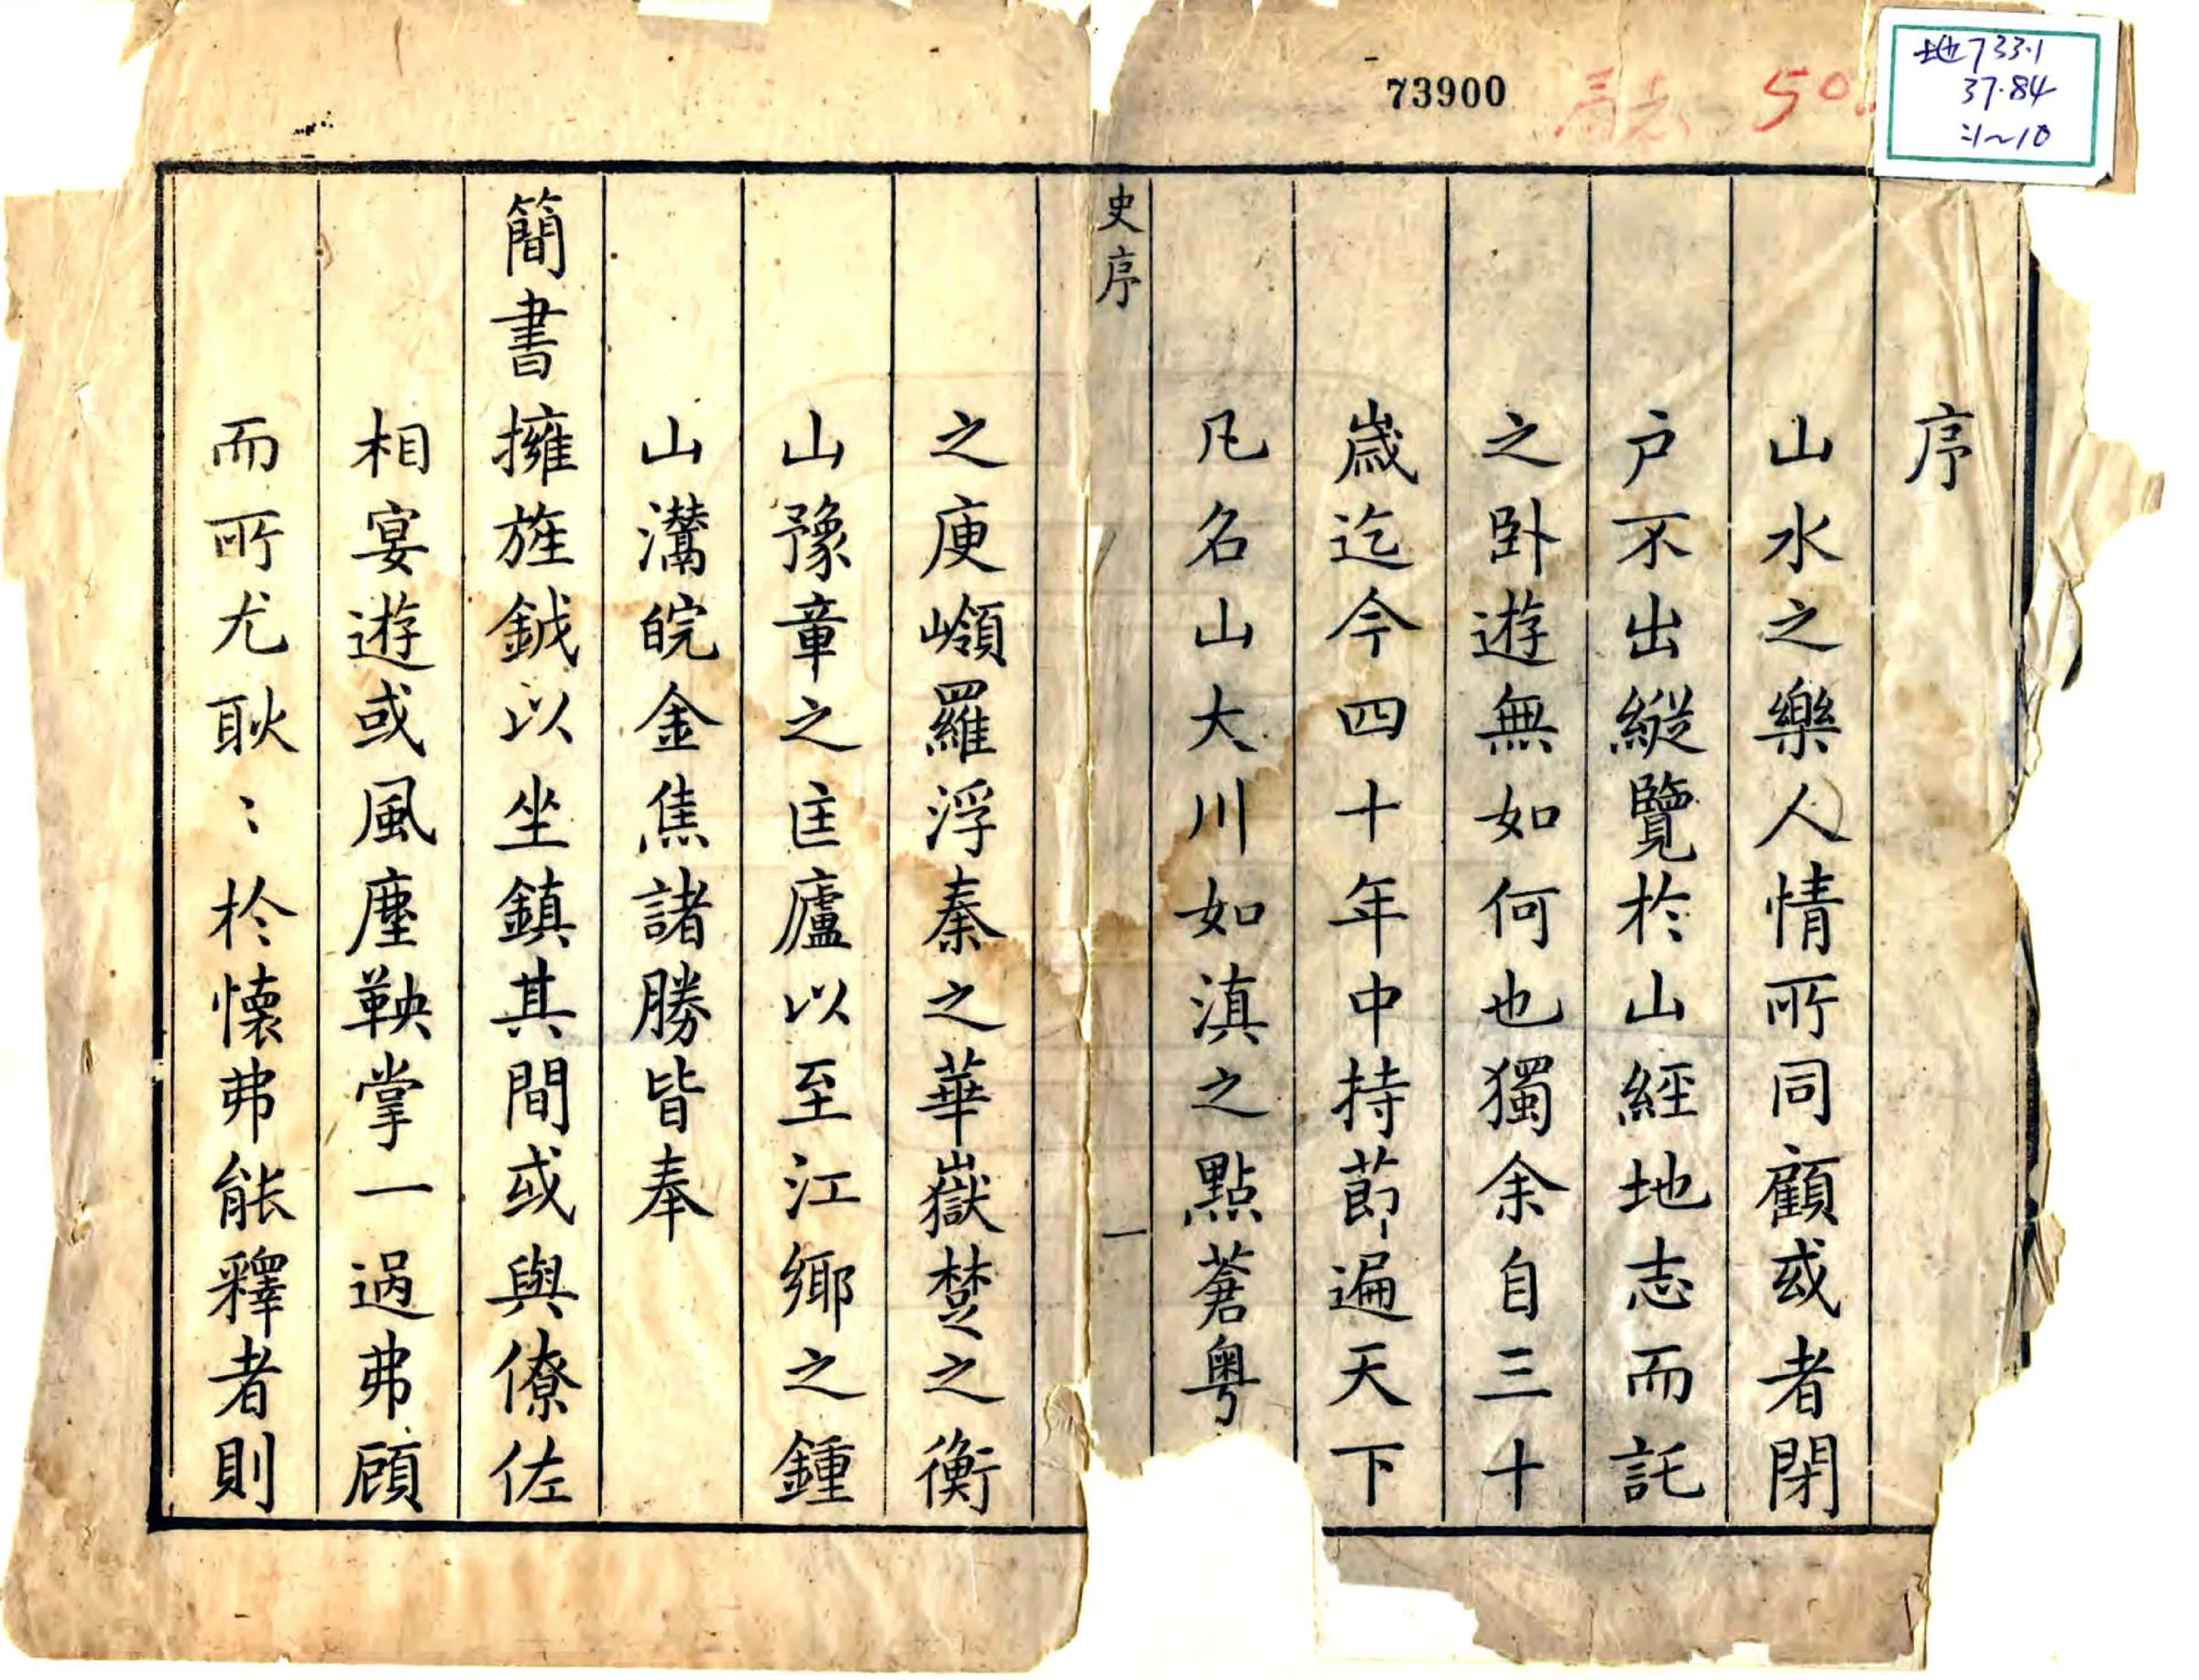 序
山水之樂人情所同顧或者閉
户不出縱覽於山經地志而託
之卧遊無如何也獨余自三十
歲迄今四十年中持節遍天下
凡名山大川如滇之點蒼粤
史序
一
之庾嶺羅浮秦之華嶽楚之衡
山豫章之匡廬以至江鄉之鍾
山灊皖金焦諸勝皆奉
簡書擁旌鉞以坐鎮其間或與僚佐
相宴遊或風塵鞅掌一過弗顧
而所尤耿〻於懷弗能釋者則
73900
50
地733.1
37.84
:1~10